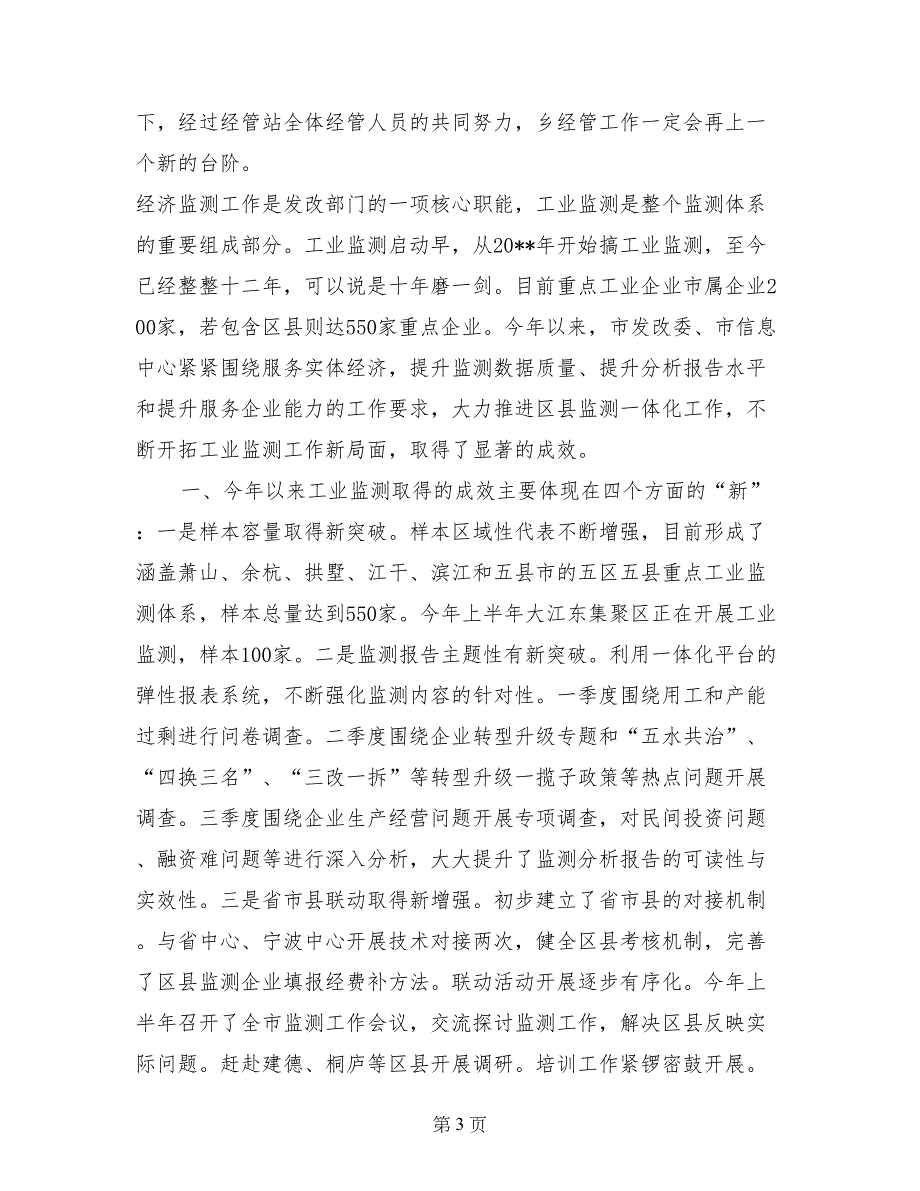 下，经过经管站全体经管人员的共同努力，乡经管工作一定会再上一
个新的台阶。
经济监测工作是发改部门的一项核心职能，工业监测是整个监测体系
的重要组成部分。工业监测启动早，从20**年开始搞工业监测，至今
已经整整十二年，可以说是十年磨一剑。目前重点工业企业市属企业2
00家，若包含区县则达550家重点企业。今年以来，市发改委、市信息
中心紧紧围绕服务实体经济，提升监测数据质量、提升分析报告水平
和提升服务企业能力的工作要求，大力推进区县监测一体化工作，不
断开拓工业监测工作新局面，取得了显著的成效。
一、今年以来工业监测取得的成效主要体现在四个方面的“新”
：一是样本容量取得新突破。样本区域性代表不断增强，目前形成了
涵盖萧山、余杭、拱墅、江干、滨江和五县市的五区五县重点工业监
测体系，样本总量达到550家。今年上半年大江东集聚区正在开展工业
监测，样本100家。二是监测报告主题性有新突破。利用一体化平台的
弹性报表系统，不断强化监测内容的针对性。一季度围绕用工和产能
过剩进行问卷调查。二季度围绕企业转型升级专题和“五水共治”、
“四换三名”、“三改一拆”等转型升级一揽子政策等热点问题开展
调查。三季度围绕企业生产经营问题开展专项调查，对民间投资问题
、融资难问题等进行深入分析，大大提升了监测分析报告的可读性与
实效性。三是省市县联动取得新增强。初步建立了省市县的对接机制
。与省中心、宁波中心开展技术对接两次，健全区县考核机制，完善
了区县监测企业填报经费补方法。联动活动开展逐步有序化。今年上
半年召开了全市监测工作会议，交流探讨监测工作，解决区县反映实
际问题。赶赴建德、桐庐等区县开展调研。培训工作紧锣密鼓开展。
第 3 页